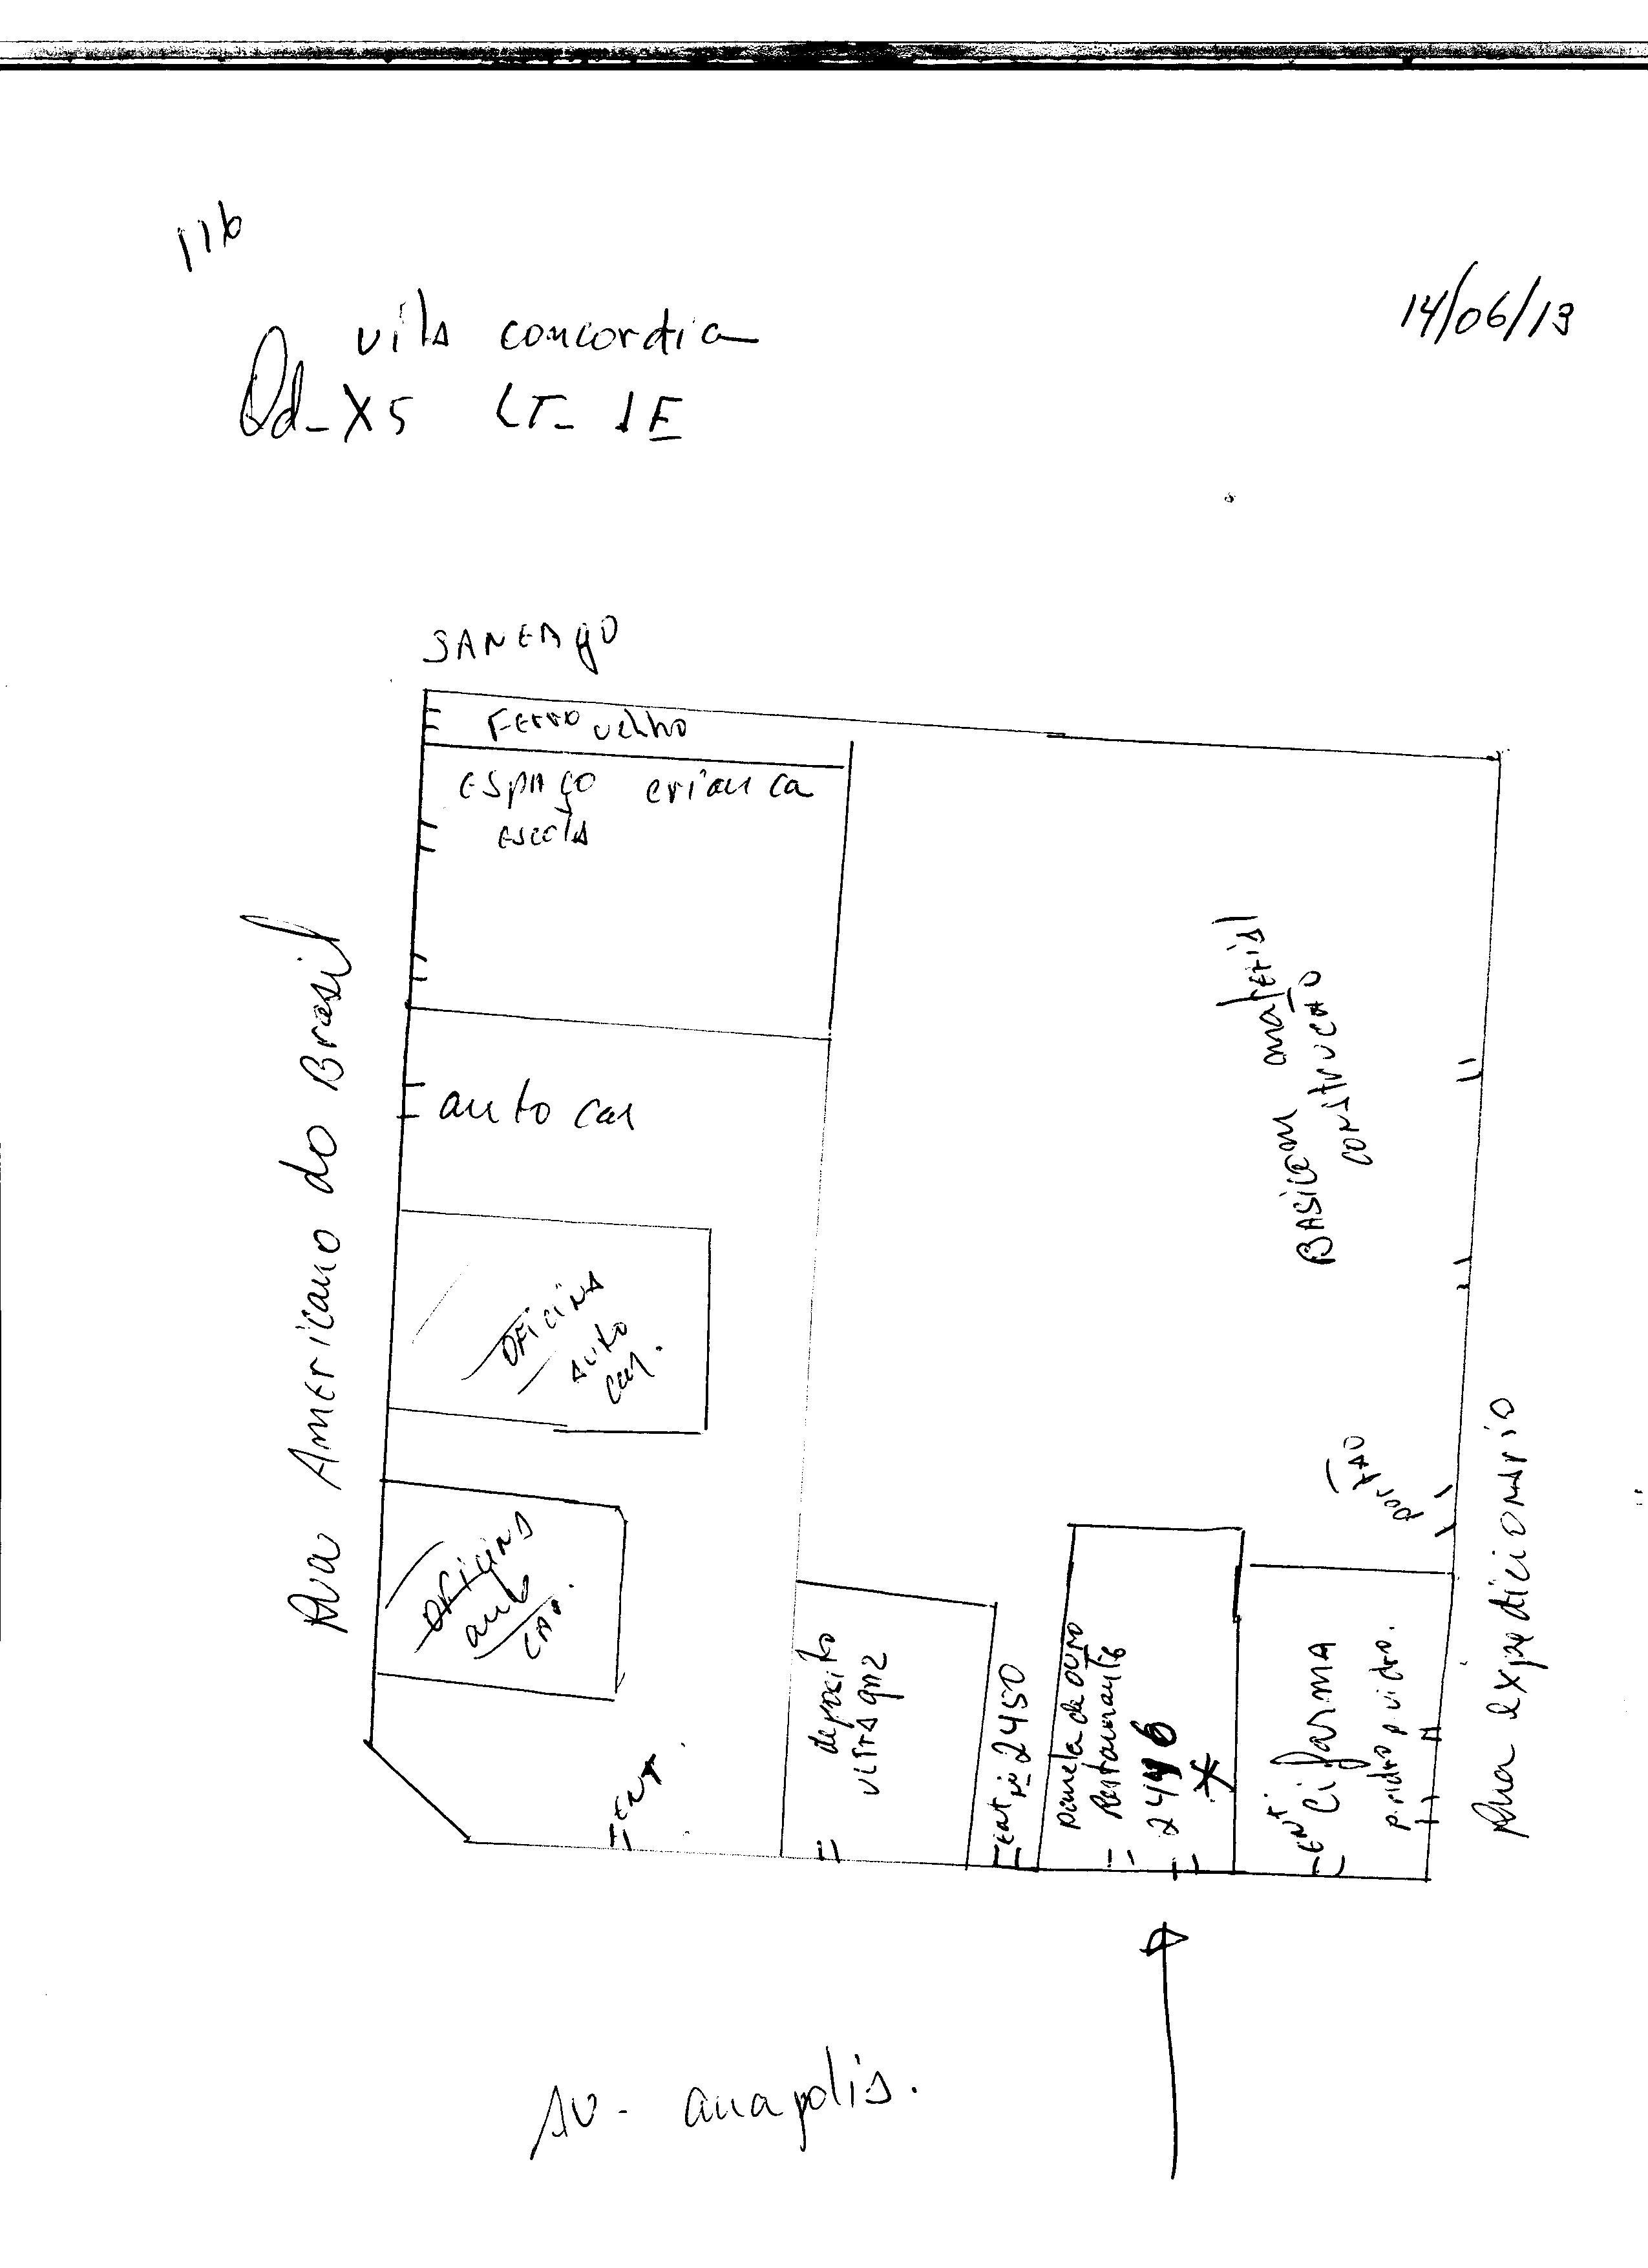 116
14/06/13
vila concordia
Qd-X5 LT- 1E
SANEAGO
Ferro velho
ESPAÇO criança
escola
Rua Americano do Brasil
auto car
BASICOM material
construcÃO
OFICINA
auto
car.
portÃO
OFICINA
auto
car.
Rua expedicionario
deposito
ENT.
ENT nº 2450
panela de ouro
Restaurante
2446
ENT
Cifarma
Av. anapolis.